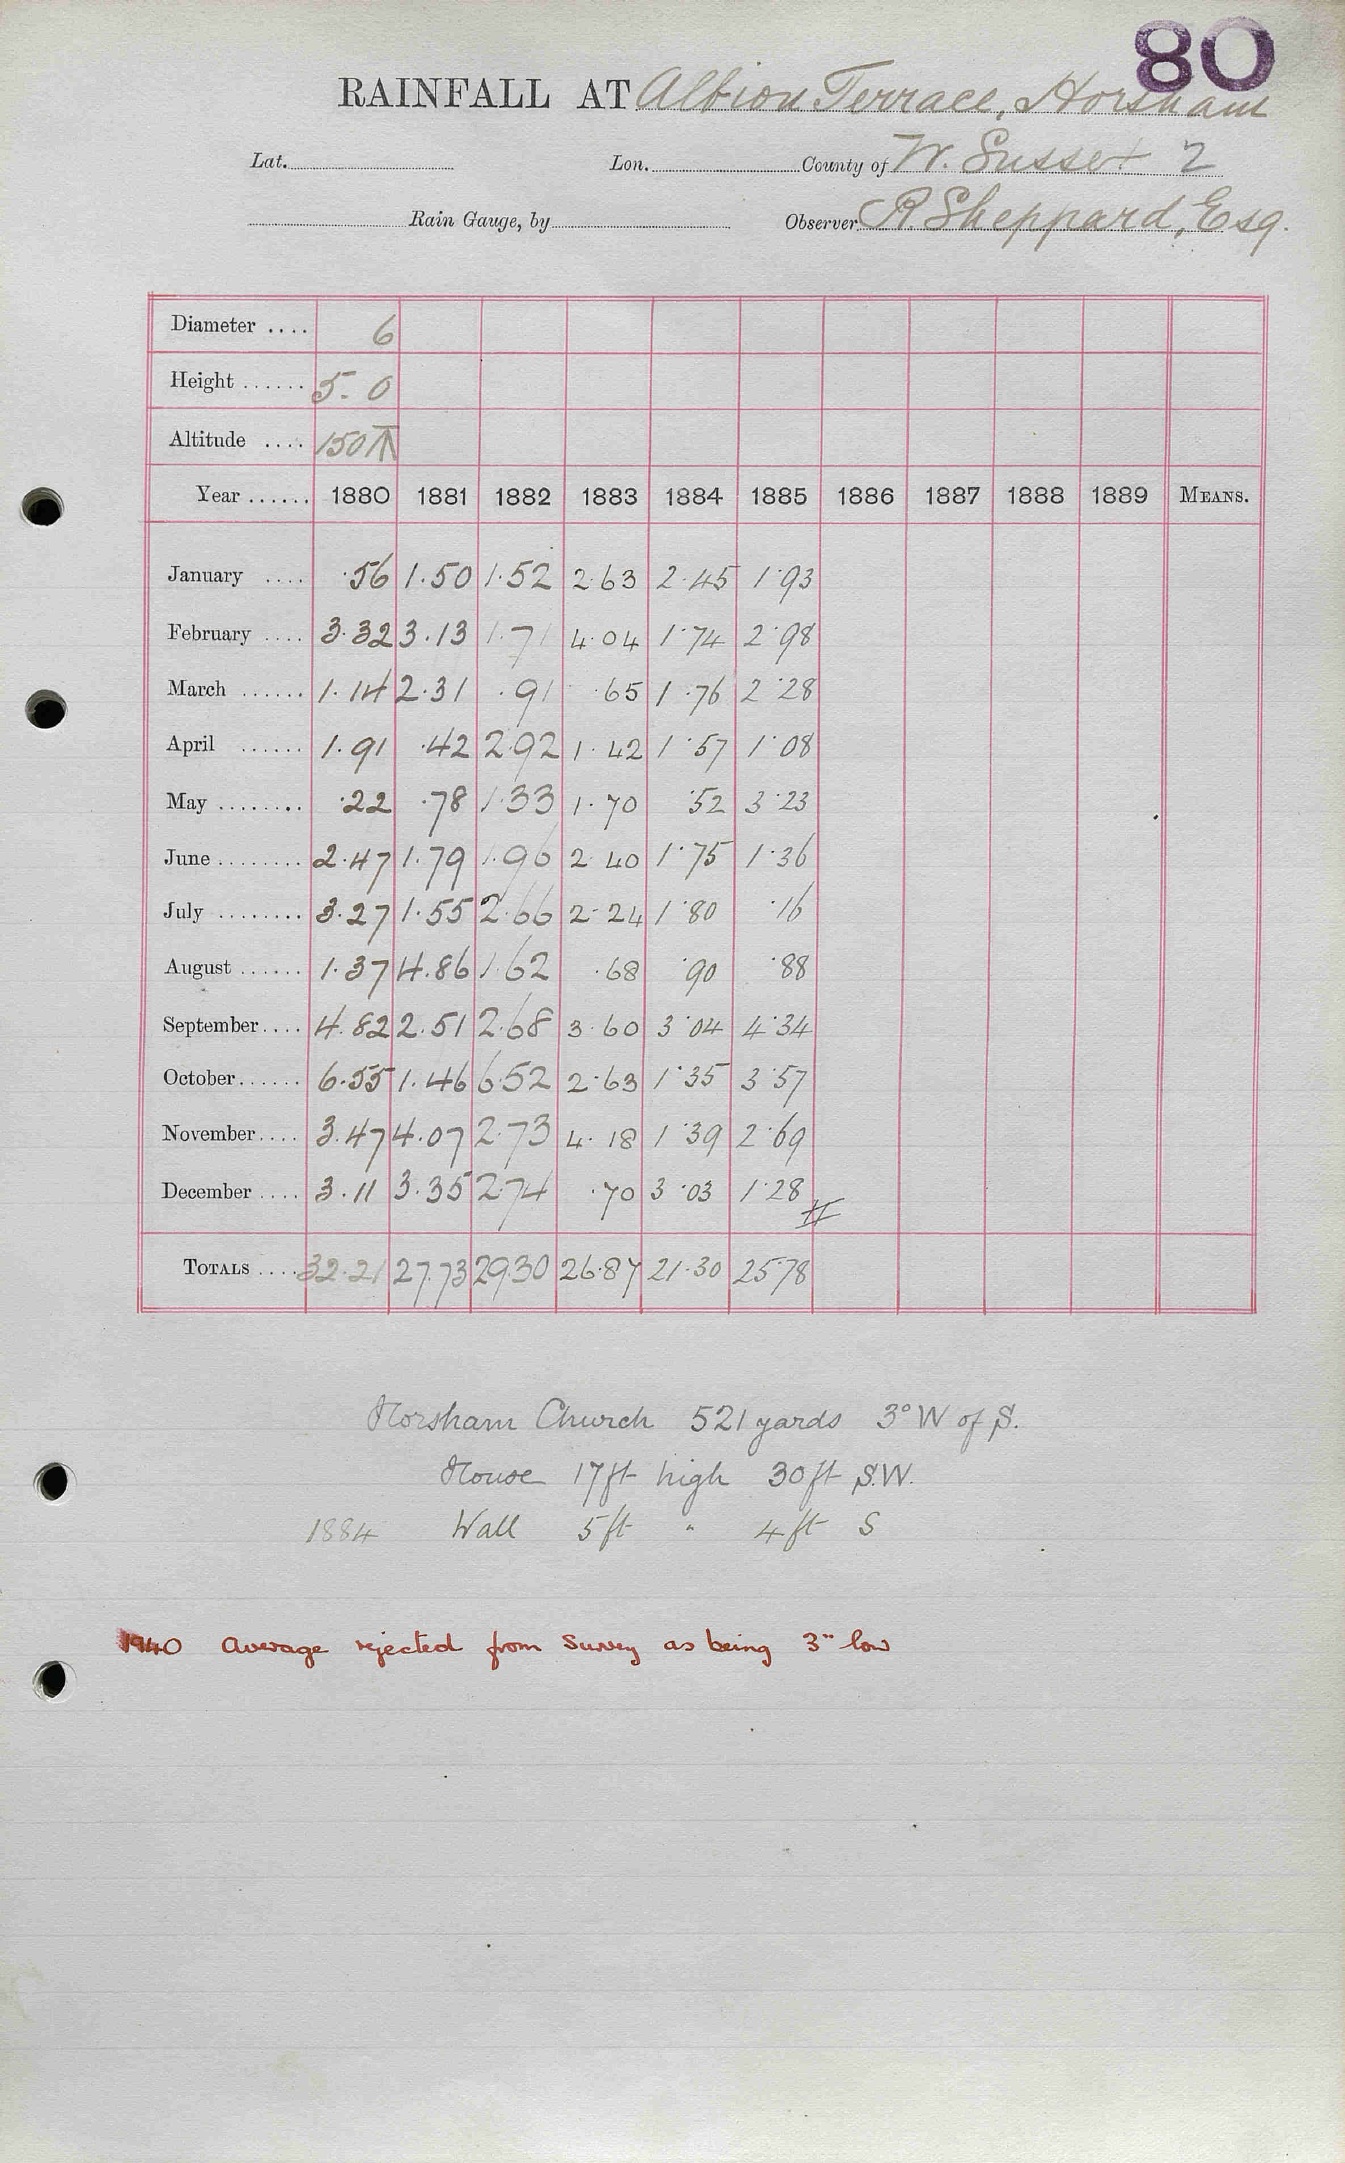 80
RAINFALL AT Albion Terrace, Horsham
Lat. Lon. County of W. Sussex 2
Rain Gauge, by Observer R. Sheppard, Esq.
Diameter .... 6
Height ...... 5. 0
Altitude .... 150
Year ...... 1880 1881 1882 1883 1884 1885 1886 1887 1888 1889 MEANS.
January .... .56 1.50 1.52 2.63 2.45 1.93
February .... 3.32 3.13 1.71 4.04 1.74 2.98
March ...... 1.14 2.31 .91 .65 1.76 2.28
April ...... 1.91 .42 2.92 1.42 1.57 1.08
May ........ .22 .78 1.33 1.70 .52 3.23
June ........ 2.47 1.79 1.96 2.40 1.75 1.36
July ........ 3.27 1.55 2.66 2.24 1.80 .16
August ...... 1.37 4.86 1.62 .68 .90 .88
September.... 4.82 2.51 2.68 3.60 3.04 4.34
October...... 6.55 1.46 6.52 2.63 1.35 3.57
November.... 3.47 4.07 2.73 4.18 1.39 2.69
December .... 3.11 3.35 2.74 .70 3.03 1.28
TOTALS .... 32.21 27.73 29.30 26.87 21.30 25.78
Horsham Church 521 yards 3° W of S.
House 17ft high 30ft S.W.
1884 Wall 5ft " 4ft S
1940 Average rejected from Survey as being 3" low